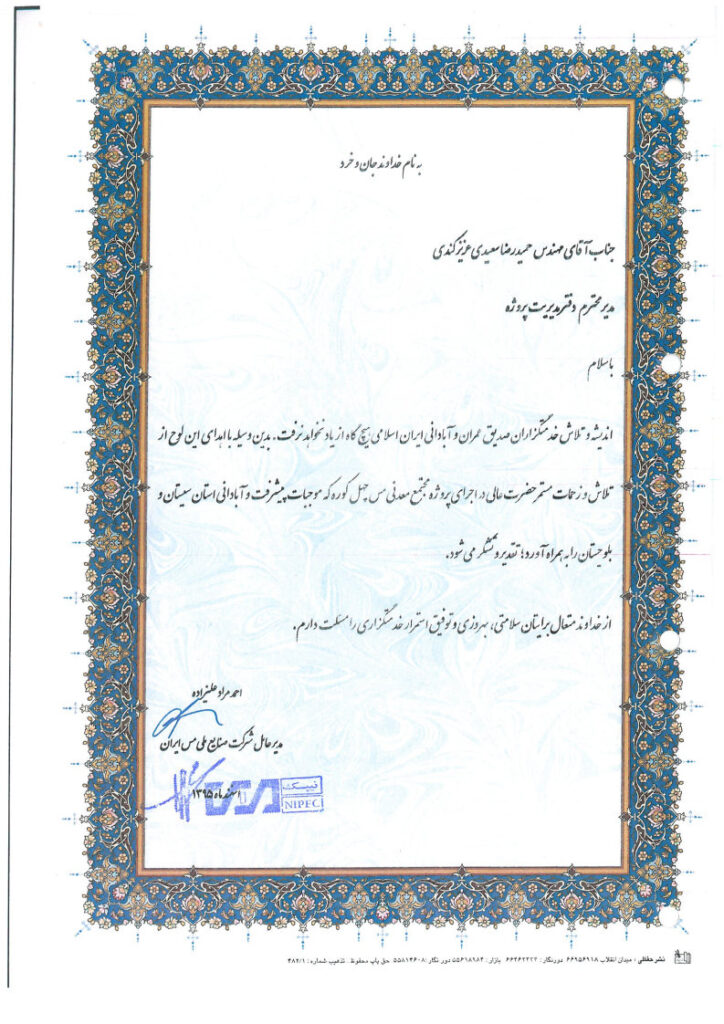 به نام خداوند جان و خرد
جناب آقای مهندس حمیدرضا سعیدی عزیزکندی
مدیر محترم دفتر مدیریت پروژه
با سلام
اندیشه و تلاش خدمتگزاران صدیق عمران و آبادانی ایران اسلامی هیچ گاه از یاد نخواهد رفت. بدین وسیله با اهدای این لوح از
تلاش و زحمات مستمر حضرت عالی در اجرای پروژه مجتمع معدنی مس چهل کوره که موجبات پیشرفت و آبادانی استان سیستان و
بلوچستان را به همراه آورد؛ تقدیر و تشکر می شود.
از خداوند متعال برایتان سلامتی، بهروزی و توفیق استمرار خدمتگزاری را مسئلت دارم.
احمد مراد علیزاده
مدیر عامل شرکت صنایع ملی مس ایران
اسفند ماه ۱۳۹۵
نیپک
NIPEC
نشر حفظی : میدان انقلاب ۶۶۹۵۶۹۱۸ دورنگار: ۶۶۴۶۲۲۲۲ بازار: ۵۵۶۱۸۱۸۴ دور نگار: ۵۵۸۱۴۶۰۸ حق چاپ محفوظ . تذهیب شماره : ۴۸۲/۱